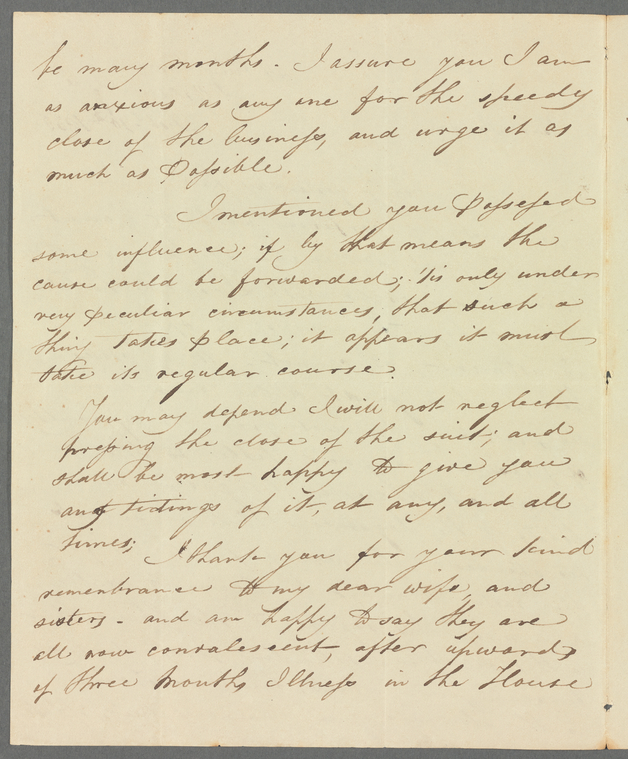 be many months. I assure you I am
as anxious as any one for the speedy
close of the business, and urge it as
much as Possible.
I mentioned you Possesed
some influence; if by that means the
cause could be forwarded; 'tis only under
very Peculiar circumstances, that such a
thing takes place; it appears it must
take its regular course.
You may depend I will not neglect
pressing the close of the suit; and
shall be most happy to give you
any tidings of it, at any, and all
times;
I thank you for your kind
remembrance to my dear wife, and
sisters - and am happy to say they are
all now convalescent, after upwards
of three Months Illness in the House